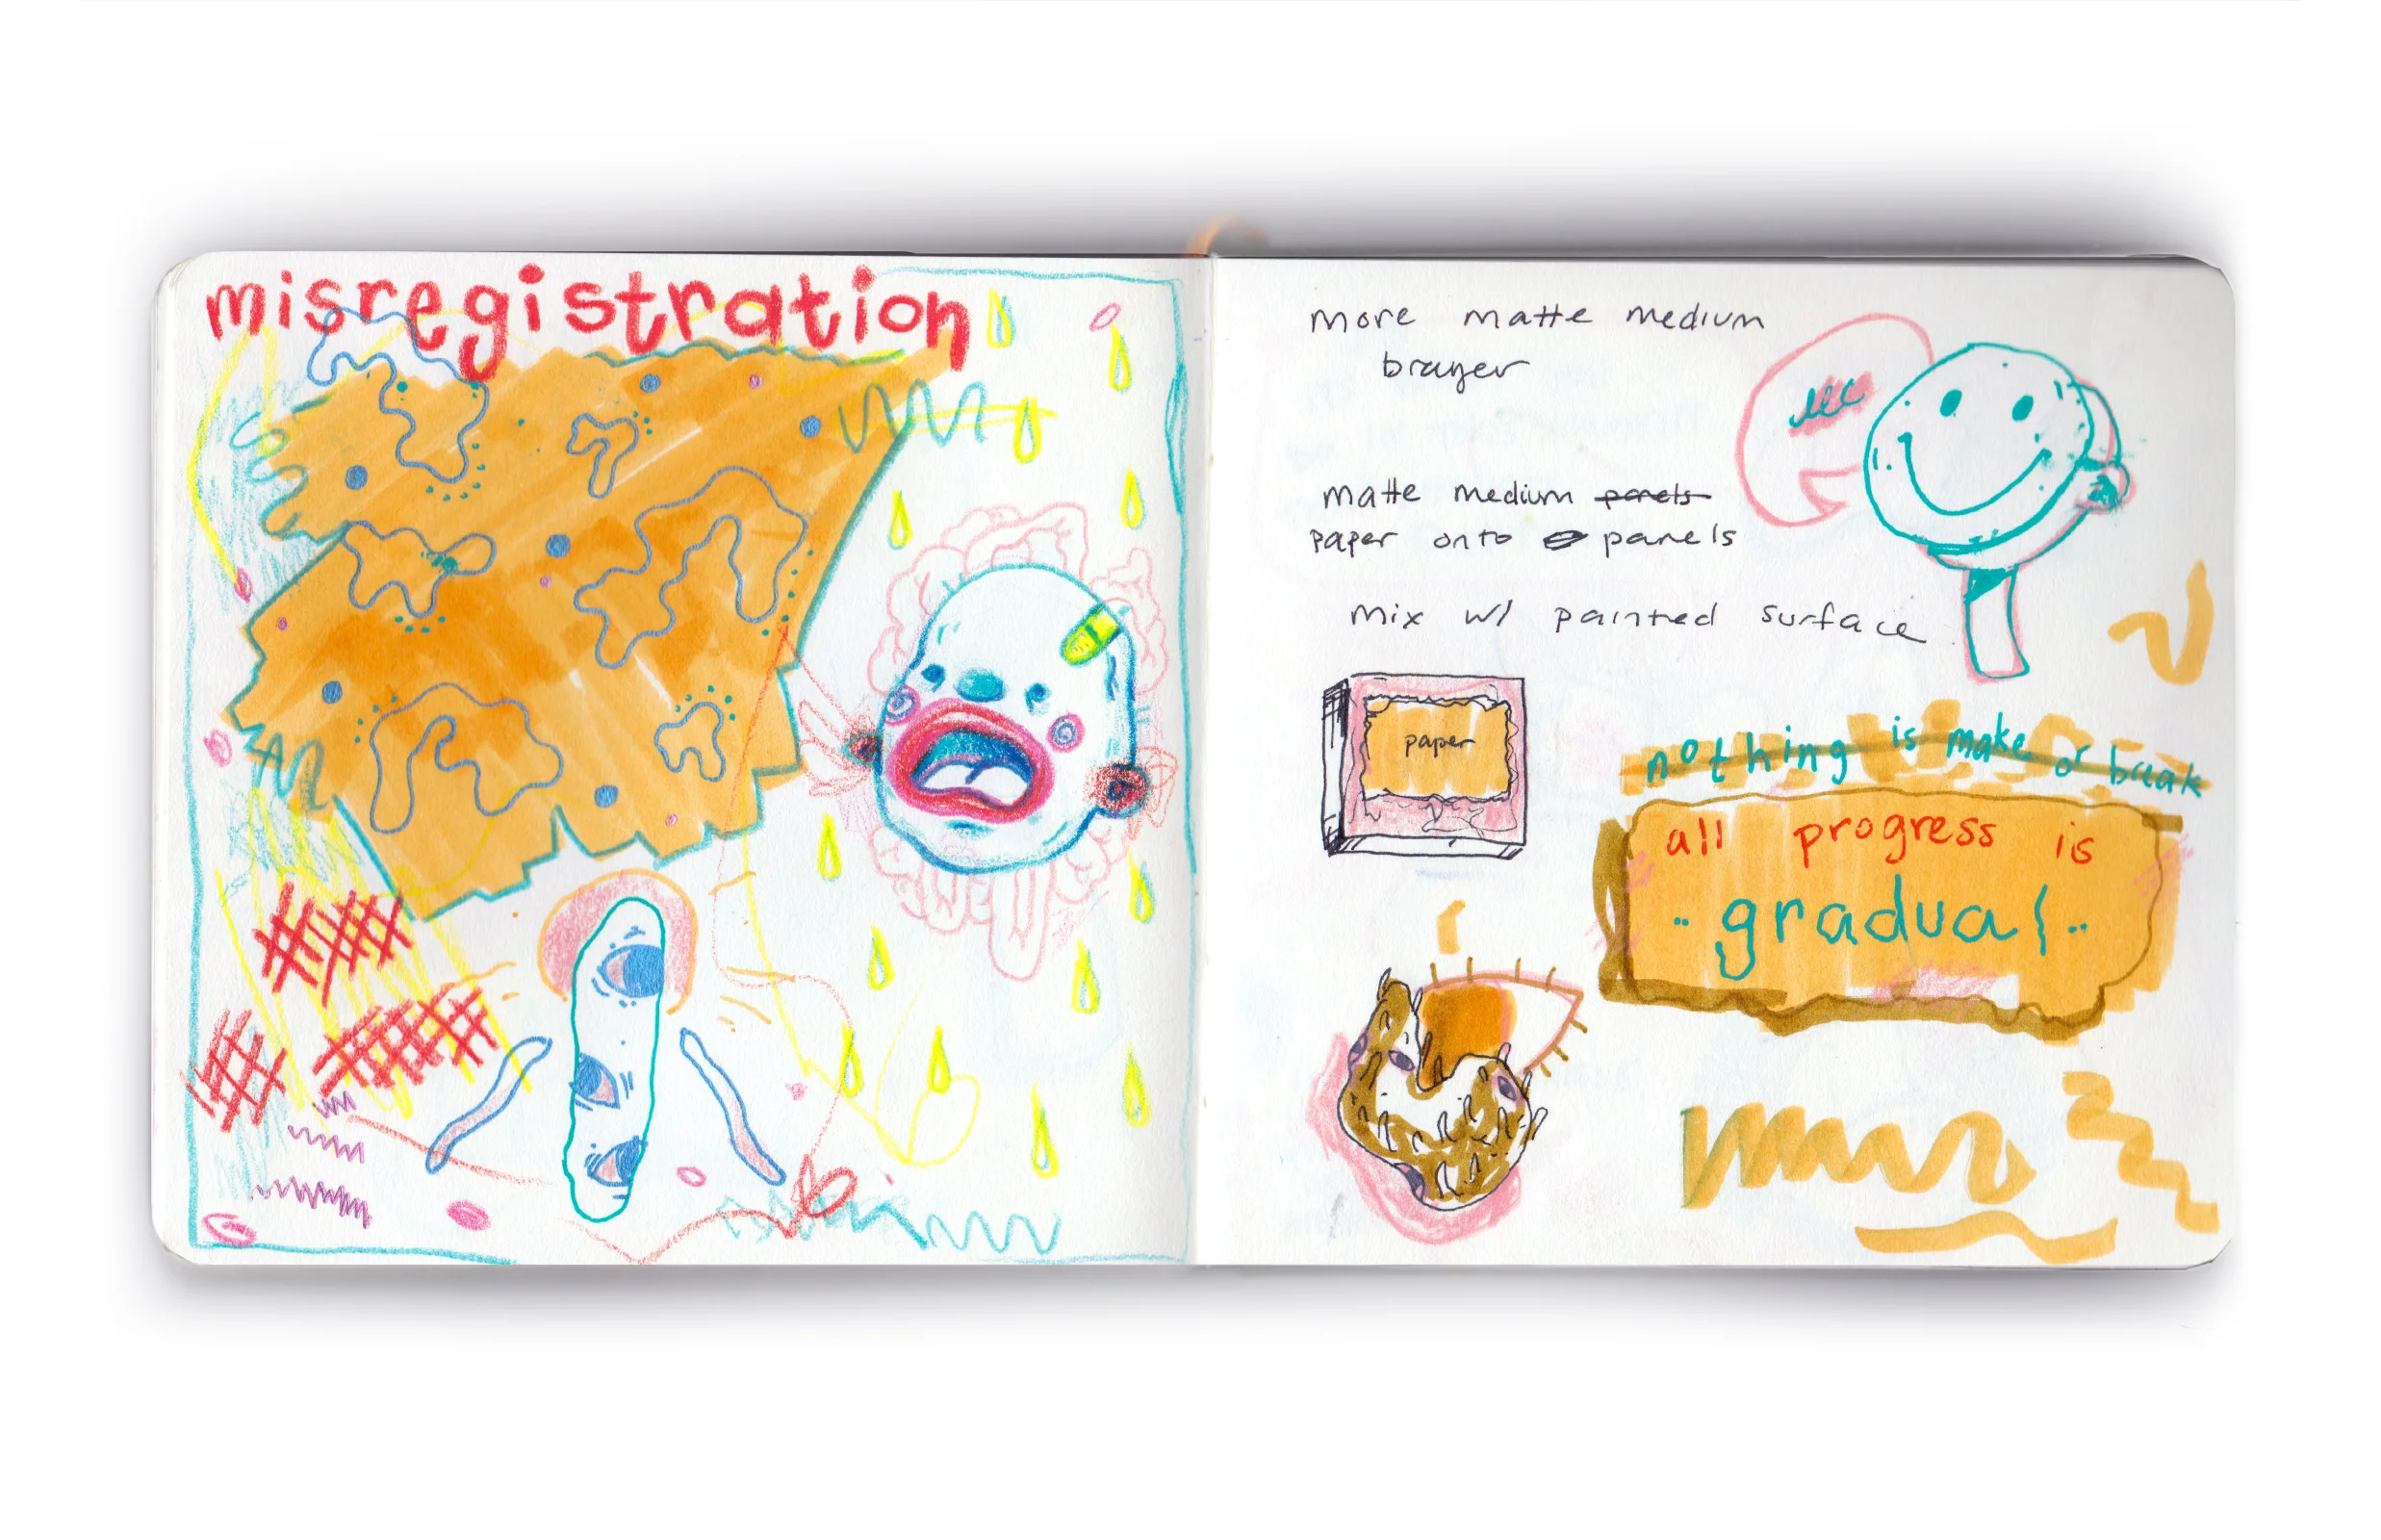 misregistration
more matte medium
brayer
matte medium panels
paper onto panels
mix w/ painted surface
paper
nothing is make or break
all progress is
gradual